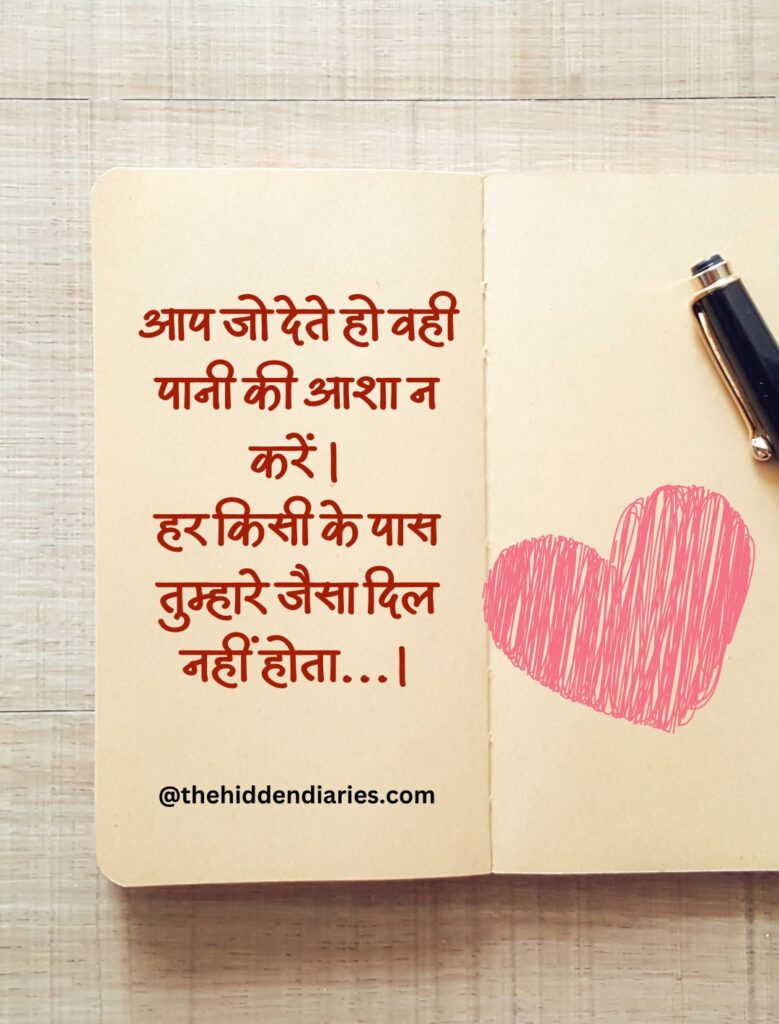 आप जो देते हो वही
पानी की आशा न
करें |
हर किसी के पास
तुम्हारे जैसा दिल
नहीं होता...|
@thehiddendiaries.com